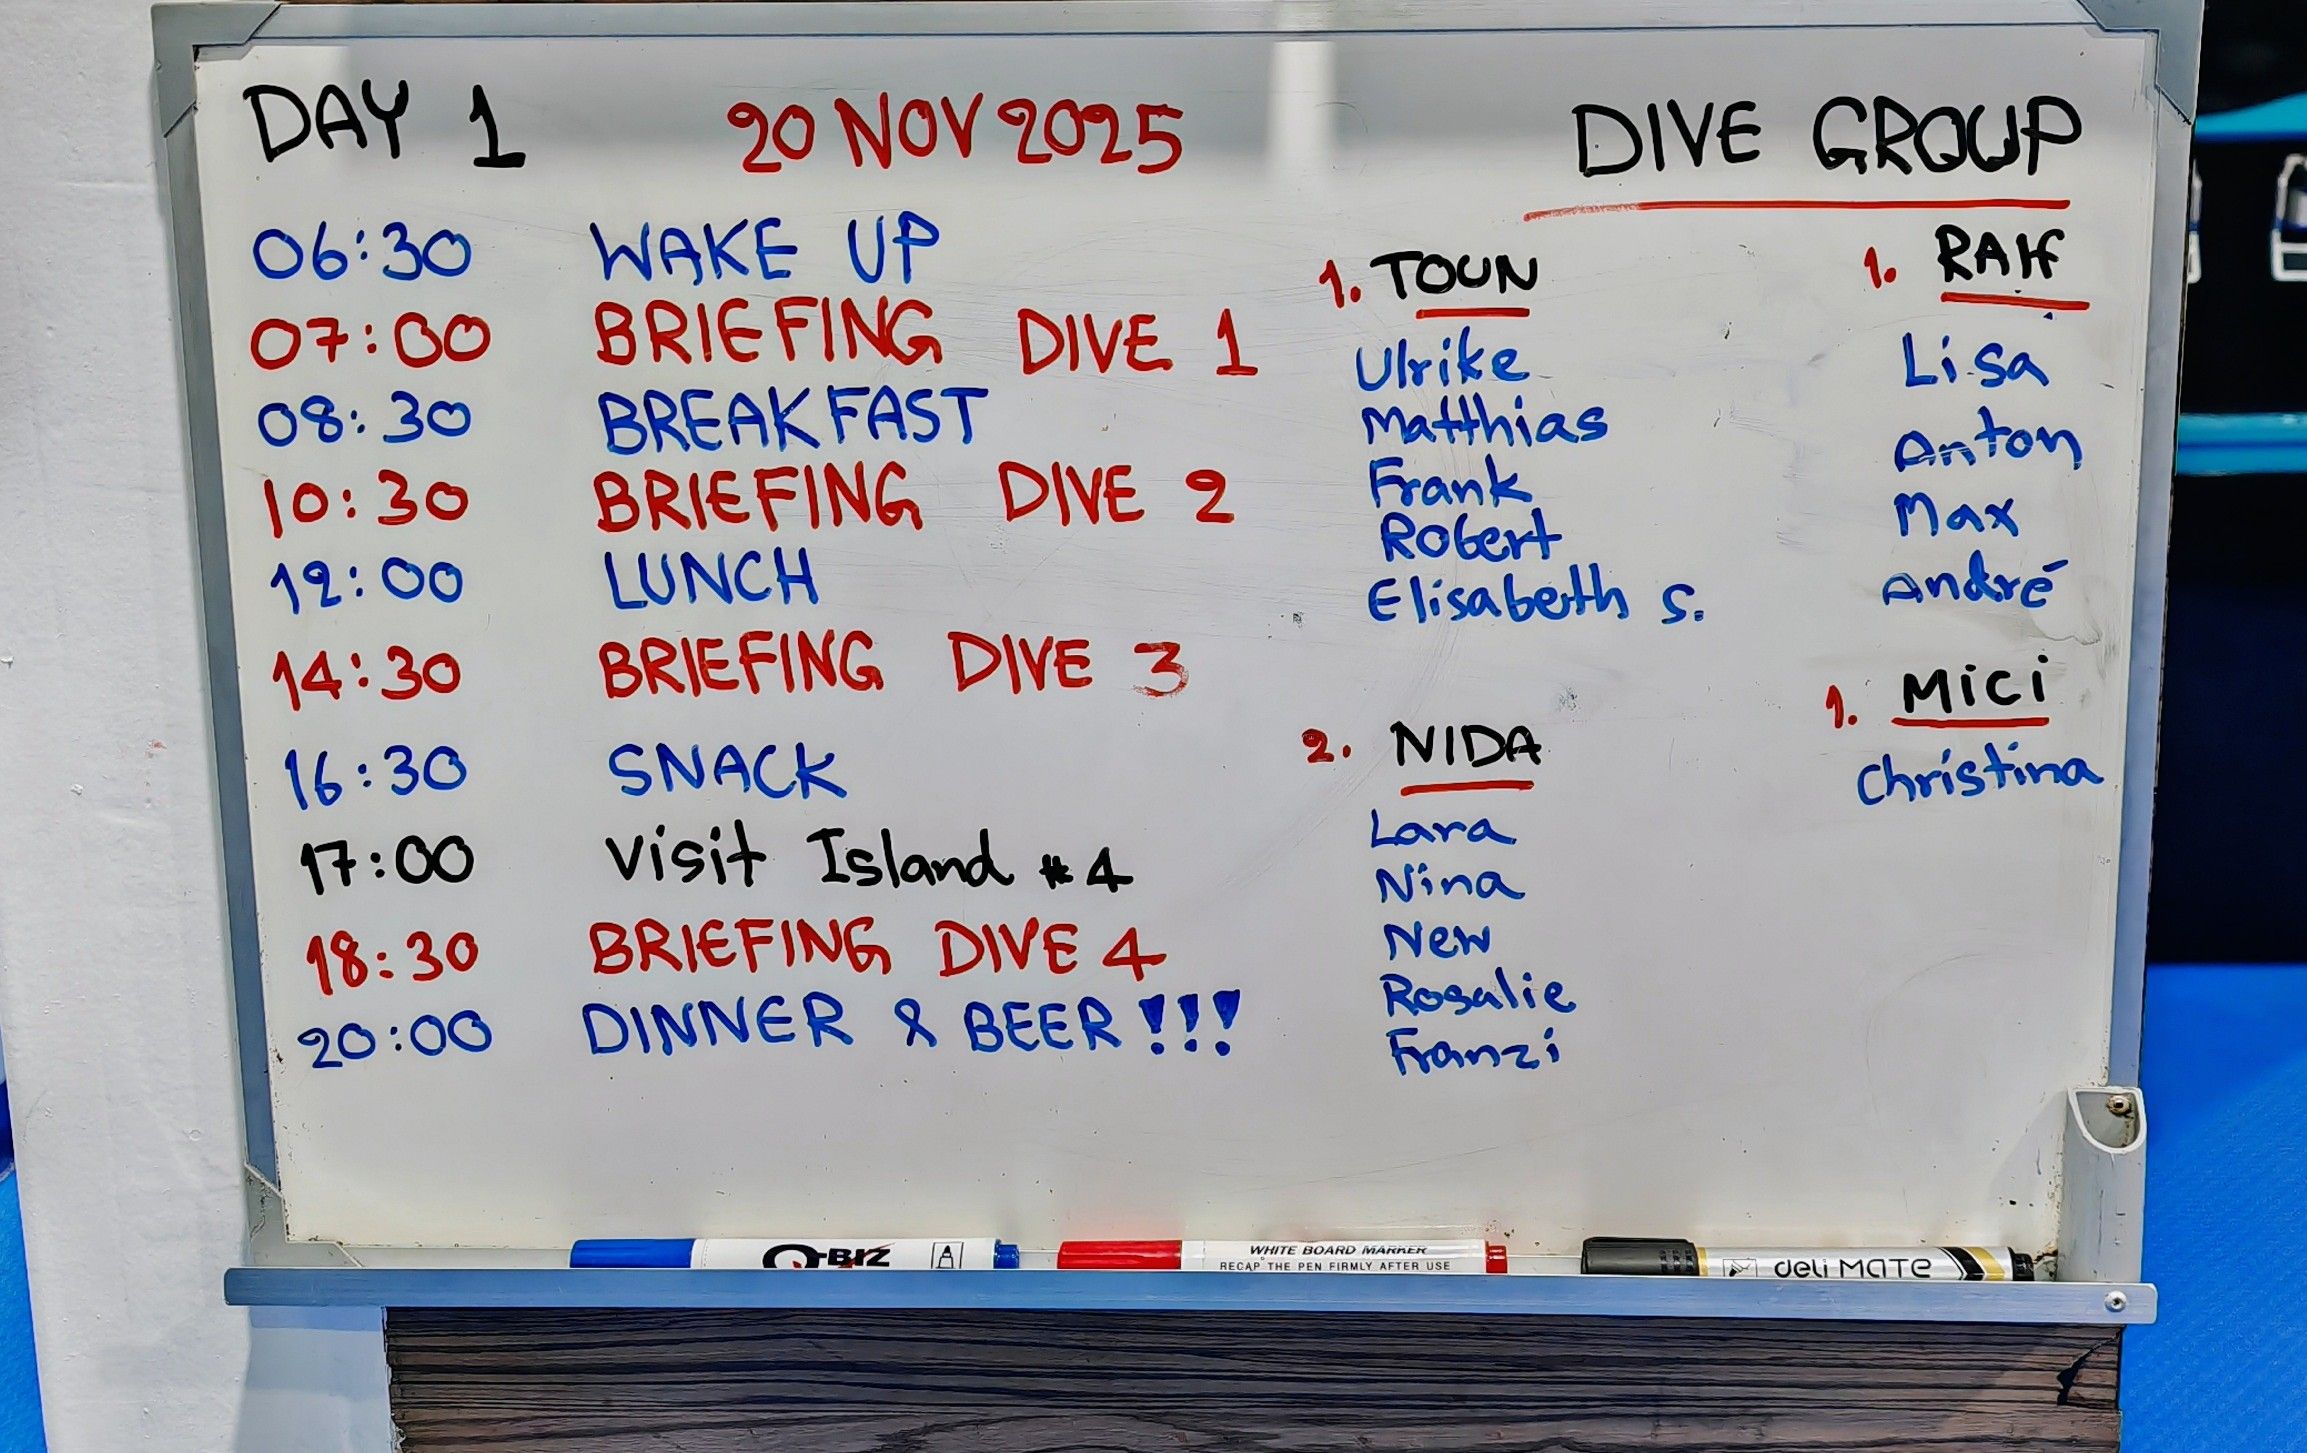 DAY 1 20 NOV 2025
06:30 WAKE UP
07:00 BRIEFING DIVE 1
08:30 BREAKFAST
10:30 BRIEFING DIVE 2
12:00 LUNCH
14:30 BRIEFING DIVE 3
16:30 SNACK
17:00 Visit Island #4
18:30 BRIEFING DIVE 4
20:00 DINNER & BEER!!!
DIVE GROUP
1. TOUN
Ulrike
Matthias
Frank
Robert
Elisabeth S.
2. NIDA
Lara
Nina
New
Rosalie
Franzi
1. RAlf
Lisa
Anton
Max
André
1. MiCi
Christina
Q-BIZ
WHITE BOARD MARKER
RECAP THE PEN FIRMLY AFTER USE
deli MATE